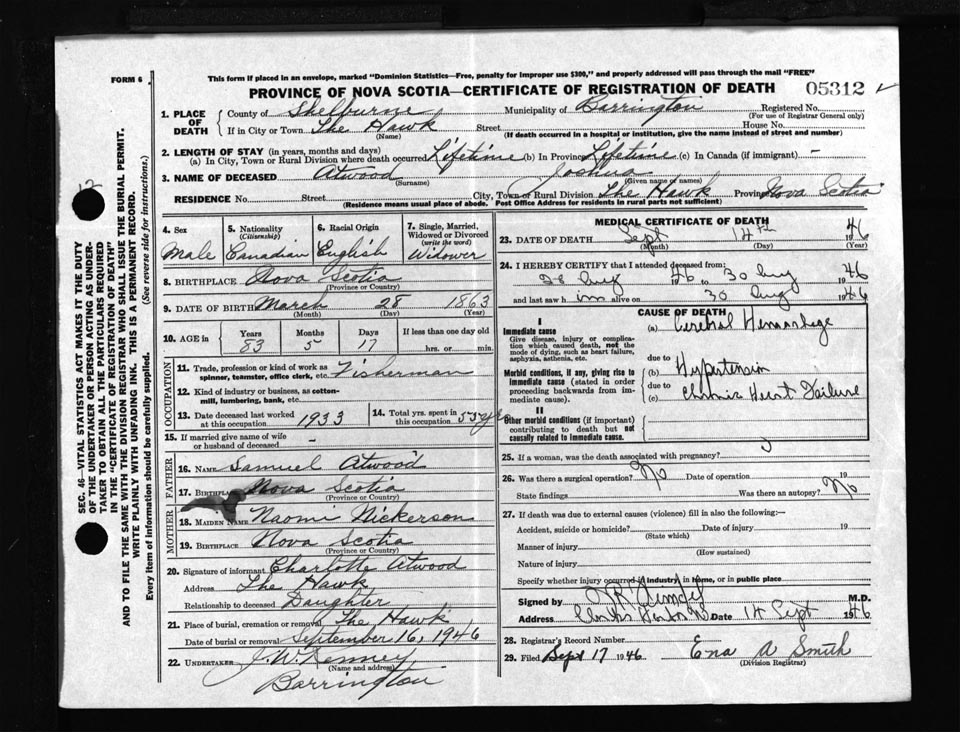 FORM 6
This form if placed in an envelope, marked "Dominion Statistics—Free, penalty for improper use $300," and properly addressed will pass through the mail "FREE"
PROVINCE OF NOVA SCOTIA—CERTIFICATE OF REGISTRATION OF DEATH 05312
1. PLACE OF DEATH County of Shelburne Municipality of Barrington Registered No.
(For use of Registrar General only)
If in City or Town The Hawk Street House No.
(Name) (If death occurred in a hospital or institution, give the name instead of street and number)
2. LENGTH OF STAY (in years, months and days)
(a) In City, Town or Rural Division where death occurred Lifetime (b) In Province Lifetime (c) In Canada (if immigrant) —
3. NAME OF DECEASED Atwood Joshua
(Surname) (Given name or names)
RESIDENCE No. Street City, Town or Rural Division The Hawk Province Nova Scotia
(Residence means usual place of abode. Post Office Address for residents in rural parts not sufficient)
4. Sex 5. Nationality (Citizenship) 6. Racial Origin 7. Single, Married, Widowed or Divorced (write the word)
Male Canadian English Widower
8. BIRTHPLACE Nova Scotia
(Province or Country)
9. DATE OF BIRTH March 28 1863
(Month) (Day) (Year)
10. AGE in Years Months Days If less than one day old
83 5 17 hrs. or min.
OCCUPATION
11. Trade, profession or kind of work as spinner, teamster, office clerk, etc. Fisherman
12. Kind of industry or business, as cotton-mill, lumbering, bank, etc.
13. Date deceased last worked at this occupation 1933
14. Total yrs. spent in this occupation 55 yrs
15. If married give name of wife or husband of deceased —
FATHER
16. NAME Samuel Atwood
17. Birthplace Nova Scotia
(Province or Country)
MOTHER
18. MAIDEN NAME Naomi Nickerson
19. BIRTHPLACE Nova Scotia
(Province or Country)
20. Signature of informant Charlotte Atwood
Address The Hawk
Relationship to deceased Daughter
21. Place of burial, cremation or removal The Hawk
Date of burial or removal September 16, 1946
22. UNDERTAKER J. W. Kenney
(Name and address)
Barrington
MEDICAL CERTIFICATE OF DEATH
23. DATE OF DEATH Sept 14th 1946
(Month) (Day) (Year)
24. I HEREBY CERTIFY that I attended deceased from:
28 Aug 46 to 30 Aug 1946
and last saw him alive on 30 Aug 1946
CAUSE OF DEATH
I
Immediate cause
Give disease, injury or complication which caused death, not the mode of dying, such as heart failure, asphyxia, asthenia, etc.
(a) Cerebral Hemorrhage
due to
Morbid conditions, if any, giving rise to immediate cause (stated in order proceeding backwards from immediate cause).
(b) Hypertension
due to
(c) Chronic Heart Failure
II
Other morbid conditions (if important) contributing to death but not causally related to immediate cause.
25. If a woman, was the death associated with pregnancy?
26. Was there a surgical operation? No Date of operation 19
State findings Was there an autopsy? No
27. If death was due to external causes (violence) fill in also the following:—
Accident, suicide or homicide? Date of injury 19
(State which)
Manner of injury
(How sustained)
Nature of injury
Specify whether injury occurred in industry, in home, or in public place
Signed by M.D.
Address Date 14 Sept 1946
28. Registrar's Record Number
29. Filed Sept 17 1946 Ena A Smith
(Division Registrar)
SEC. 46—VITAL STATISTICS ACT MAKES IT THE DUTY
OF THE UNDERTAKER OR PERSON ACTING AS UNDER-
TAKER TO OBTAIN ALL THE PARTICULARS REQUIRED
IN THE "CERTIFICATE OF REGISTRATION OF DEATH"
AND TO FILE THE SAME WITH THE DIVISION REGISTRAR WHO SHALL ISSUE THE BURIAL PERMIT.
WRITE PLAINLY WITH UNFADING INK. THIS IS A PERMANENT RECORD.
Every item of information should be carefully supplied. (See reverse side for instructions.)
12